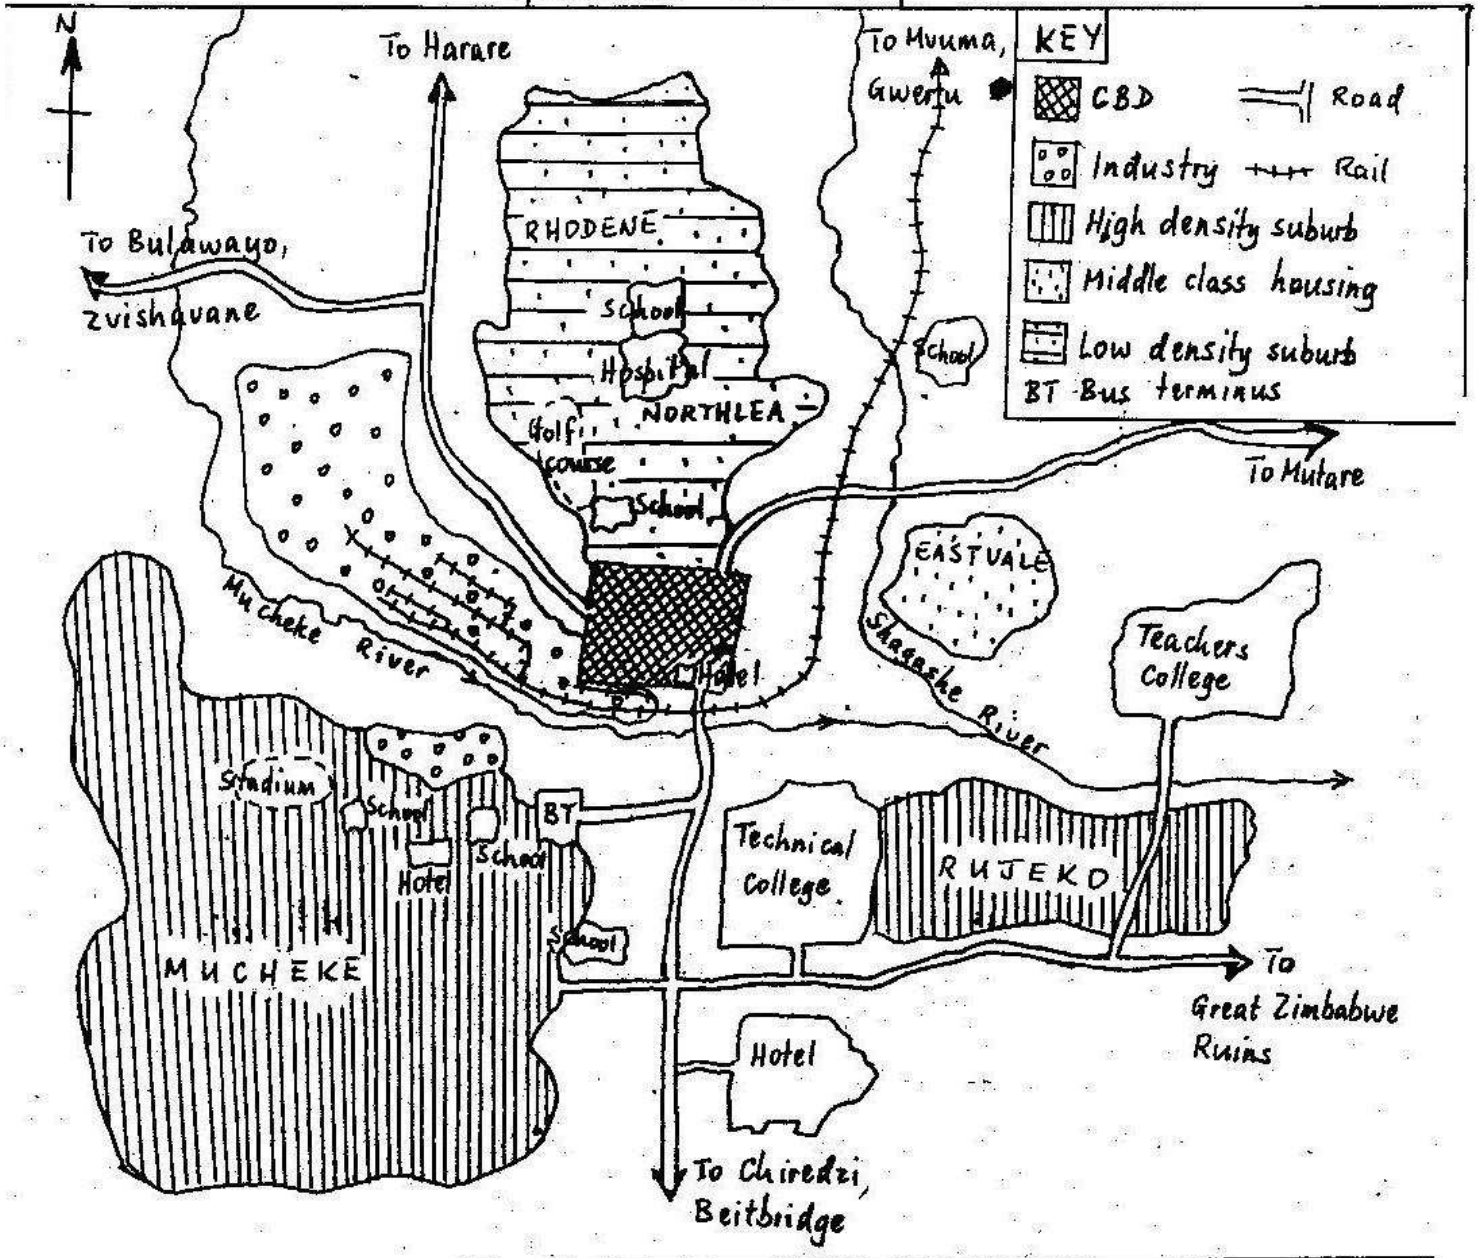 N
To Harare
To Mvuma,
Gweru
KEY
CBD
Road
Industry
Rail
High density suburb
Middle class housing
Low density suburb
BT - Bus terminus
To Bulawayo,
Zvishavane
RHODENE
School
Hospital
NORTHLEA
Golf
course
School
School
To Mutare
EASTVALE
Mucheke River
Hotel
Shagashe River
Teachers
College
Stadium
School
School
Hotel
BT
Technical
College
RUJEKO
School
MUCHEKE
To
Great Zimbabwe
Ruins
Hotel
To Chiredzi,
Beitbridge